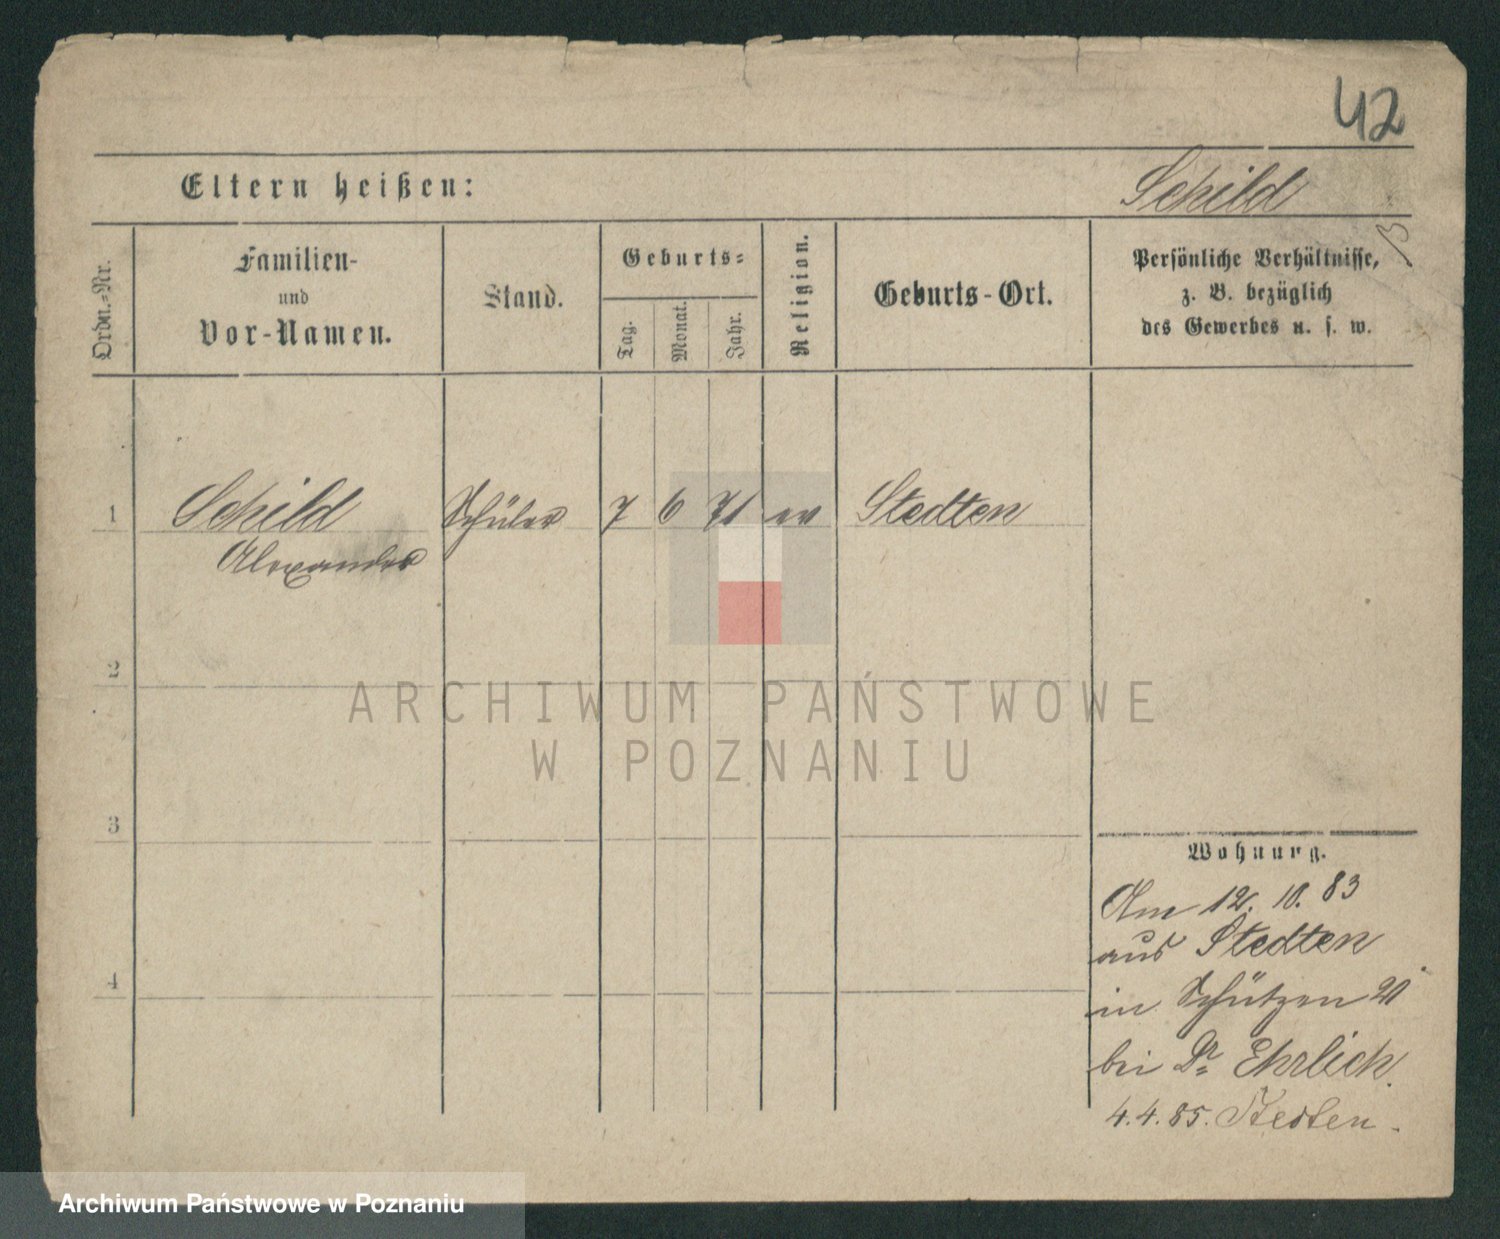 42
Eltern heißen:
Schild
B
Ordn.-Nr.
Familien-
und
Vor-Namen.
Stand.
Geburts-
Tag.
Monat.
Jahr.
Religion.
Geburts-Ort.
Persönliche Verhältnisse,
z. B. bezüglich
des Gewerbes u. s. w.
1 Schild Schüler 7 6 71 ev Stedten
Alexander
2
3
4
ARCHIWUM PAŃSTWOWE
W POZNANIU
Wohnung.
Am 12. 10. 83
aus Stedten
in Schützen 21
bei Dr. Ehrlich.
4.4.85. Stedten.
Archiwum Państwowe w Poznaniu